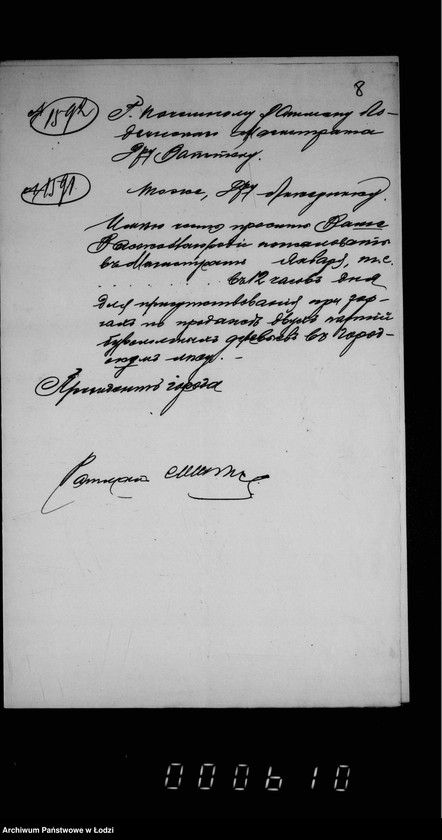 8
№ 1592 Г. Почетному Ратману Ло-
дзинскаго Магистрата
Вл.
№ 1591 Тоже,
Имею честь просить Ваше
Высокоблагородіе пожаловать
въ Магистратъ Января, т.г.
. . . . . . . въ 12 часовъ дня
для присутствованія при тор-
гахъ по продажѣ двухъ партій
деревьевъ въ Город-
скомъ лѣсу. –
Президентъ города
000610
Archiwum Państwowe w Łodzi